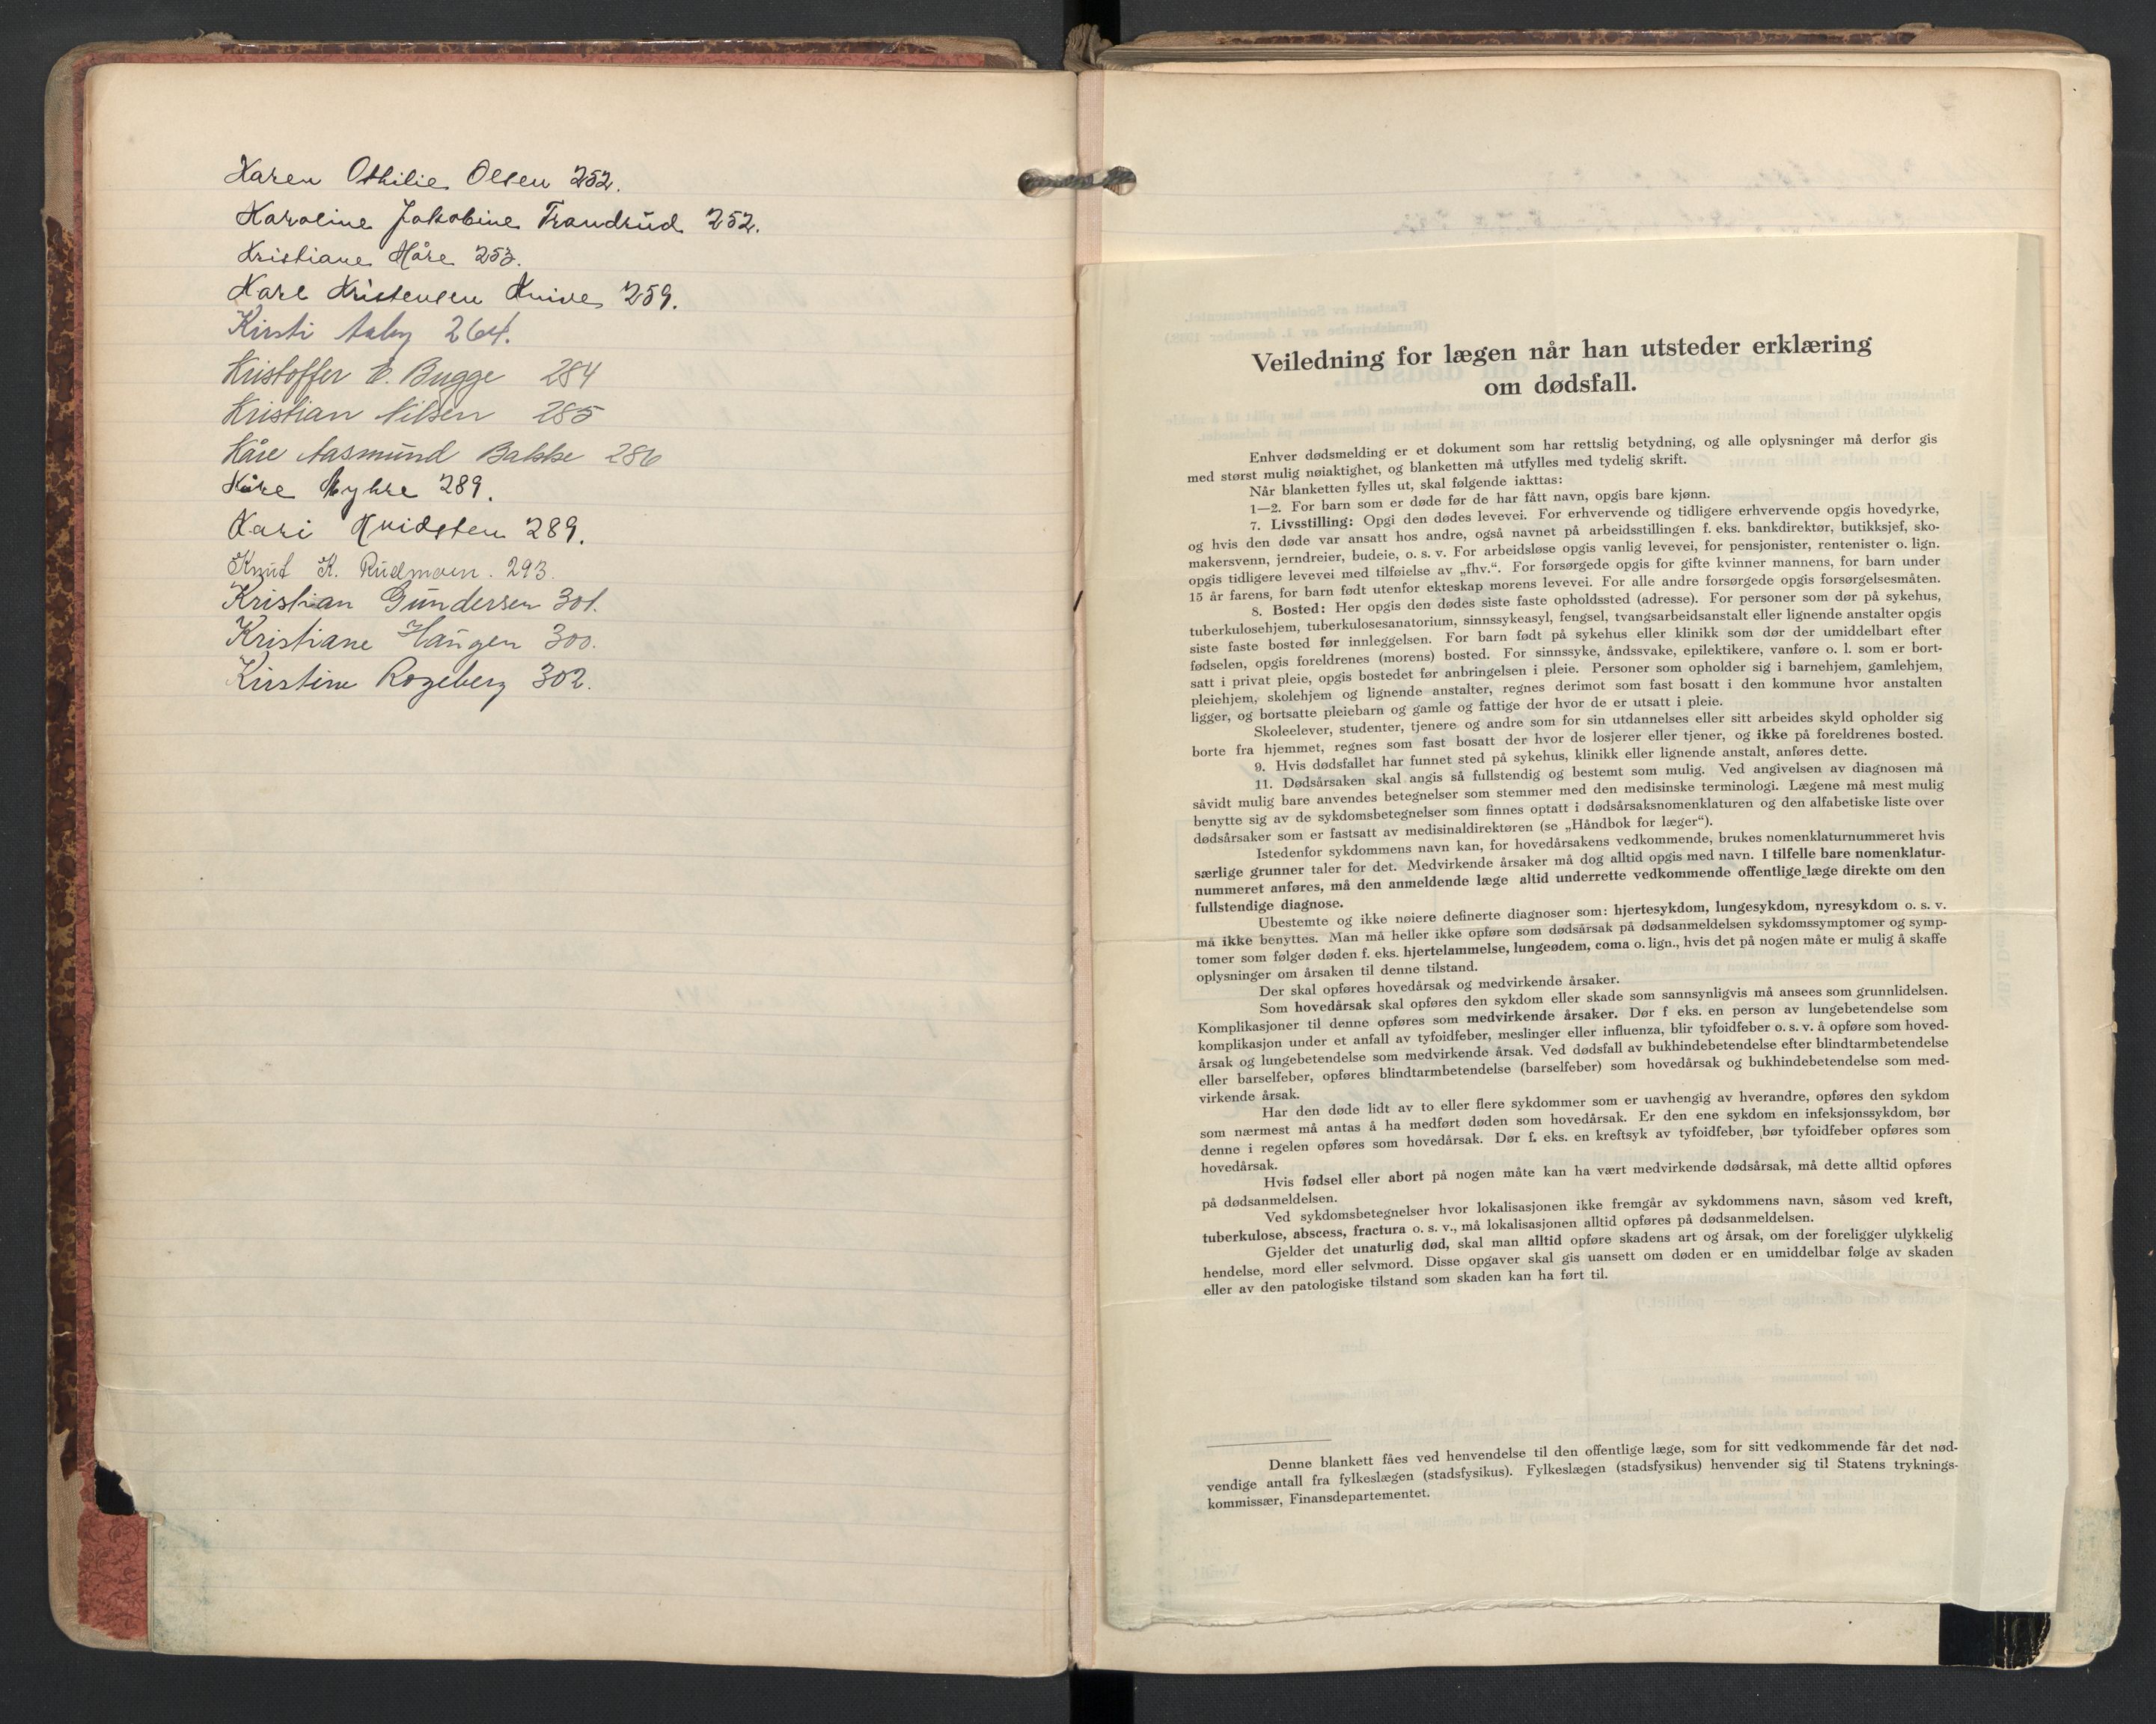 Karen Othilie Olsen 252.
Karoline Jakobine Trandrud 252.
Kristiane Håre 253.
Karl Kristensen Knive 259.
Kirsti Aaby 264.
Kristoffer E. Bugge 284
Kristian Nilsen 285
Kåre Aasmund Bakke 286
Kåre Myhre 289.
Kari Kvidsten 289.
Knut K. Rudmoen. 293.
Kristian Gundersen 301.
Kristiane Haugen 300.
Kirstine Rogeberg 302.
Veiledning for lægen når han utsteder erklæring
om dødsfall.
Enhver dødsmelding er et dokument som har rettslig betydning, og alle oplysninger må derfor gis
med størst mulig nøiaktighet, og blanketten må utfylles med tydelig skrift.
Når blanketten fylles ut, skal følgende iakttas:
1—2. For barn som er døde før de har fått navn, opgis bare kjønn.
7. Livsstilling: Opgi den dødes levevei. For erhvervende og tidligere erhvervende opgis hovedyrke,
og hvis den døde var ansatt hos andre, også navnet på arbeidsstillingen f. eks. bankdirektør, butikksjef, sko-
makersvenn, jerndreier, budeie, o. s. v. For arbeidsløse opgis vanlig levevei, for pensjonister, rentenister o. lign.
opgis tidligere levevei med tilføielse av „fhv.“. For forsørgede opgis for gifte kvinner mannens, for barn under
15 år farens, for barn født utenfor ekteskap morens levevei. For alle andre forsørgede opgis forsørgelsesmåten.
8. Bosted: Her opgis den dødes siste faste opholdssted (adresse). For personer som dør på sykehus,
tuberkulosehjem, tuberkulosesanatorium, sinnssykeasyl, fengsel, tvangsarbeidsanstalt eller lignende anstalter opgis
siste faste bosted før innleggelsen. For barn født på sykehus eller klinikk som dør der umiddelbart efter
fødselen, opgis foreldrenes (morens) bosted. For sinnssyke, åndssvake, epilektikere, vanføre o. l. som er bort-
satt i privat pleie, opgis bostedet før anbringelsen i pleie. Personer som opholder sig i barnehjem, gamlehjem,
pleiehjem, skolehjem og lignende anstalter, regnes derimot som fast bosatt i den kommune hvor anstalten
ligger, og bortsatte pleiebarn og gamle og fattige der hvor de er utsatt i pleie.
Skoleelever, studenter, tjenere og andre som for sin utdannelses eller sitt arbeides skyld opholder sig
borte fra hjemmet, regnes som fast bosatt der hvor de losjerer eller tjener, og ikke på foreldrenes bosted.
9. Hvis dødsfallet har funnet sted på sykehus, klinikk eller lignende anstalt, anføres dette.
11. Dødsårsaken skal angis så fullstendig og bestemt som mulig. Ved angivelsen av diagnosen må
såvidt mulig bare anvendes betegnelser som stemmer med den medisinske terminologi. Lægene må mest mulig
benytte sig av de sykdomsbetegnelser som finnes optatt i dødsårsaksnomenklaturen og den alfabetiske liste over
dødsårsaker som er fastsatt av medisinaldirektøren (se „Håndbok for læger“).
Istedenfor sykdommens navn kan, for hovedårsakens vedkommende, brukes nomenklaturnummeret hvis
særlige grunner taler for det. Medvirkende årsaker må dog alltid opgis med navn. I tilfelle bare nomenklatur-
nummeret anføres, må den anmeldende læge altid underrette vedkommende offentlige læge direkte om den
fullstendige diagnose.
Ubestemte og ikke nøiere definerte diagnoser som: hjertesykdom, lungesykdom, nyresykdom o. s. v.
må ikke benyttes. Man må heller ikke opføre som dødsårsak på dødsanmeldelsen sykdomssymptomer og symp-
tomer som følger døden f. eks. hjertelammelse, lungeødem, coma o. lign., hvis det på nogen måte er mulig å skaffe
oplysninger om årsaken til denne tilstand.
Der skal opføres hovedårsak og medvirkende årsaker.
Som hovedårsak skal opføres den sykdom eller skade som sannsynligvis må ansees som grunnlidelsen.
Komplikasjoner til denne opføres som medvirkende årsaker. Dør f eks. en person av lungebetendelse som
komplikasjon under et anfall av tyfoidfeber, meslinger eller influenza, blir tyfoidfeber o. s. v. å opføre som hoved-
årsak og lungebetendelse som medvirkende årsak. Ved dødsfall av bukhindebetendelse efter blindtarmbetendelse
eller barselfeber, opføres blindtarmbetendelse (barselfeber) som hovedårsak og bukhindebetendelse som med-
virkende årsak.
Har den døde lidt av to eller flere sykdommer som er uavhengig av hverandre, opføres den sykdom
som nærmest må antas å ha medført døden som hovedårsak. Er den ene sykdom en infeksjonssykdom, bør
denne i regelen opføres som hovedårsak. Dør f. eks. en kreftsyk av tyfoidfeber, bør tyfoidfeber opføres som
hovedårsak.
Hvis fødsel eller abort på nogen måte kan ha vært medvirkende dødsårsak, må dette alltid opføres
på dødsanmeldelsen.
Ved sykdomsbetegnelser hvor lokalisasjonen ikke fremgår av sykdommens navn, såsom ved kreft,
tuberkulose, abscess, fractura o. s. v., må lokalisasjonen alltid opføres på dødsanmeldelsen.
Gjelder det unaturlig død, skal man alltid opføre skadens art og årsak, om der foreligger ulykkelig
hendelse, mord eller selvmord. Disse opgaver skal gis uansett om døden er en umiddelbar følge av skaden
eller av den patologiske tilstand som skaden kan ha ført til.
Denne blankett fåes ved henvendelse til den offentlige læge, som for sitt vedkommende får det nød-
vendige antall fra fylkeslægen (stadsfysikus). Fylkeslægen (stadsfysikus) henvender sig til Statens tryknings-
kommissær, Finansdepartementet.